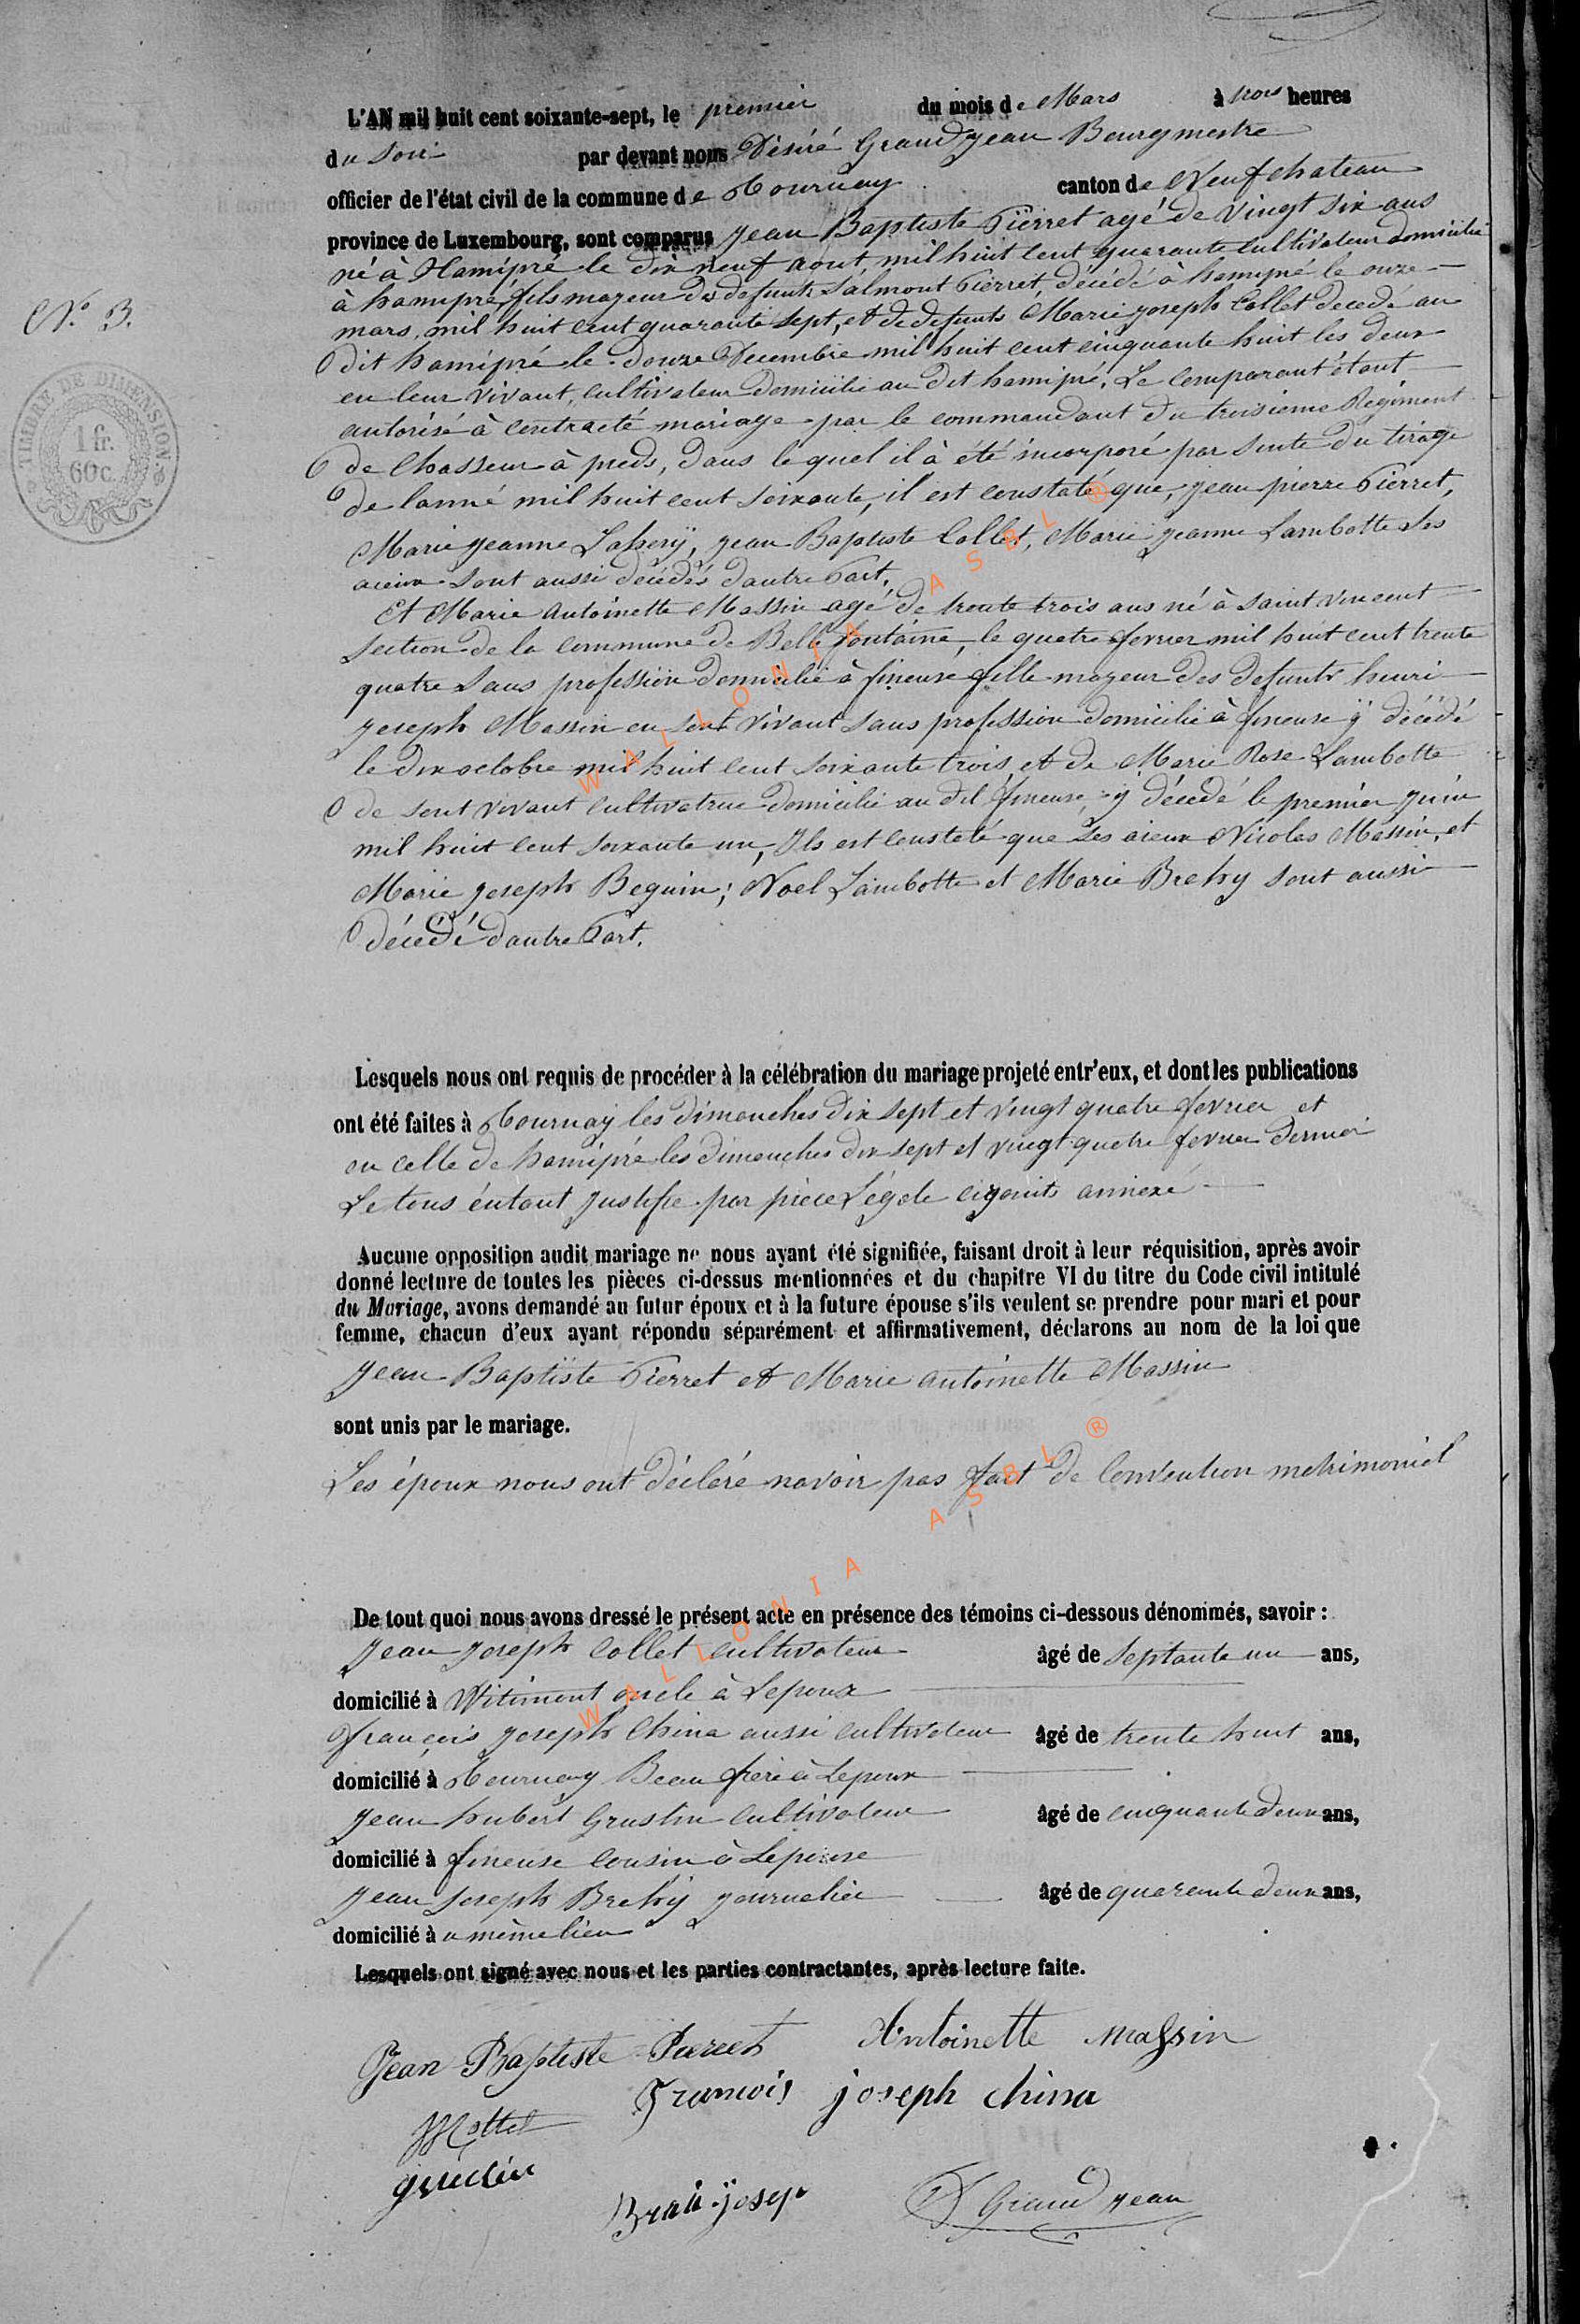 L'AN mil huit cent soixante-sept, le premier du mois de Mars à trois heures
du Soir par devant nous Désiré Grandjean Bourgmestre
officier de l'état civil de la commune de Tournay canton de Neufchateau
province de Luxembourg, sont comparus Jean Baptiste Pierret agé de Vingt Six ans
né à Hamipré le dix neuf aout mil huit cent quarante cultivateur domicilié
à hamipré, fils mayeur des defunts Salmont Pierret décédé à hamipré le onze
mars mil huit cent quarante sept, et de defunts Marie joseph Collet decedé au
dit hamipré le douze Decembre mil huit cent cinquante huit les deux
en leur Vivant, cultivateur domicilié au dit hamipré. Le comparant étant
autorisé à contracté mariage par le commandant du troisieme Régiment
de Chasseur à pieds, dans lequel il à été incorporé par suite du tirage
de lanné mil huit cent soixante, il est constaté que, jean pierre Pierret,
Marie jeanne, jean Baptiste Collet, Marie jeanne Lambotte Ses
aieux sont aussi décédés dautre Part.
Et Marie Antoinette Massin agé de trente trois ans né à Saint Vincent
Section de la commune de Belle fontaine, le quatre fevrier mil huit cent trente
quatre Sans profession domicilié à fineuse fille mayeur des defunts henri
joseph Massin en sont Vivant sans profession domicilié à fineuse ÿ décédé
le dix octobre mil huit cent soixante trois et de Marie Rose Lambotte
de sont vivant cultivatrice domicilié au dit fineuse, y décédé le premier juin
mil huit cent soixante un, Ils est constaté que Ses aieux Nicolas Massin, et
Marie joseph Beguin; Noel Lambotte et Marie Brehy sont aussi
décédé dautre Part.
N°. 3.
TIMBRE DE DIMENSION
1 fr.
60c.
Lesquels nous ont requis de procéder à la célébration du mariage projeté entr'eux, et dont les publications
ont été faites à Tournay les dimenches dix sept et vingt quatre fevrier et
en celle de hamipré les dimenches dix sept et vingt quatre fevrier dernier
Le tous éntant justifie par pièce Légale cijoints annexé
Aucune opposition audit mariage ne nous ayant été signifiée, faisant droit à leur réquisition, après avoir
donné lecture de toutes les pièces ci-dessus mentionnées et du chapitre VI du titre du Code civil intitulé
du Mariage, avons demandé au futur époux et à la future épouse s'ils veulent se prendre pour mari et pour
femme, chacun d'eux ayant répondu séparément et affirmativement, déclarons au nom de la loi que
Jean Baptiste Pierret et Marie Antoinette Massin
sont unis par le mariage.
Les époux nous ont déclaré navoir pas fait de Convention metrimoniel
De tout quoi nous avons dressé le présent acte en présence des témoins ci-dessous dénommés, savoir :
Jean Joseph Collet cultivateur âgé de Septante un ans,
domicilié à Witimont oncle à Lepoux
françois joseph China aussi cultivateur âgé de trente huit ans,
domicilié à Tournay Beau frere à Lepoux
Jean hubert Grustin cultivateur âgé de cinquante deux ans,
domicilié à fineuse cousin à Lepouse
Jean Joseph Brehÿ journalier âgé de quarante deux ans,
domicilié à u même lieu
Lesquels ont signé avec nous et les parties contractantes, après lecture faite.
Jean Baptiste Pierret Antoinette Massin
Francois joseph china
JJ Collet
D Grandjean
WALLONIA ASBL ®
WALLONIA ASBL ®